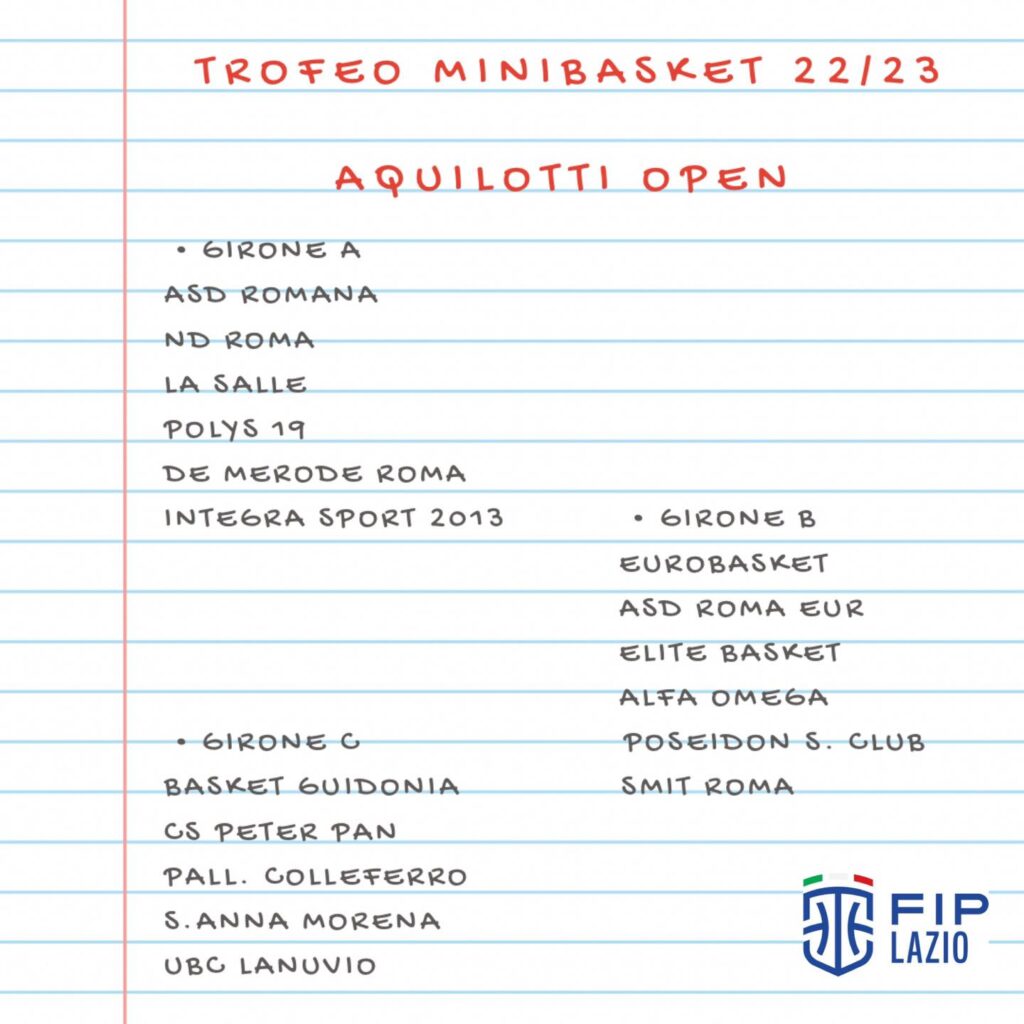 TROFEO MINIBASKET 22/23
AQUILOTTI OPEN
• GIRONE A
ASD ROMANA
ND ROMA
LA SALLE
POLYS 19
DE MERODE ROMA
INTEGRA SPORT 2013
• GIRONE B
EUROBASKET
ASD ROMA EUR
ELITE BASKET
ALFA OMEGA
POSEIDON S. CLUB
SMIT ROMA
• GIRONE C
BASKET GUIDONIA
CS PETER PAN
PALL. COLLEFERRO
S.ANNA MORENA
UBC LANUVIO
FIP
LAZIO